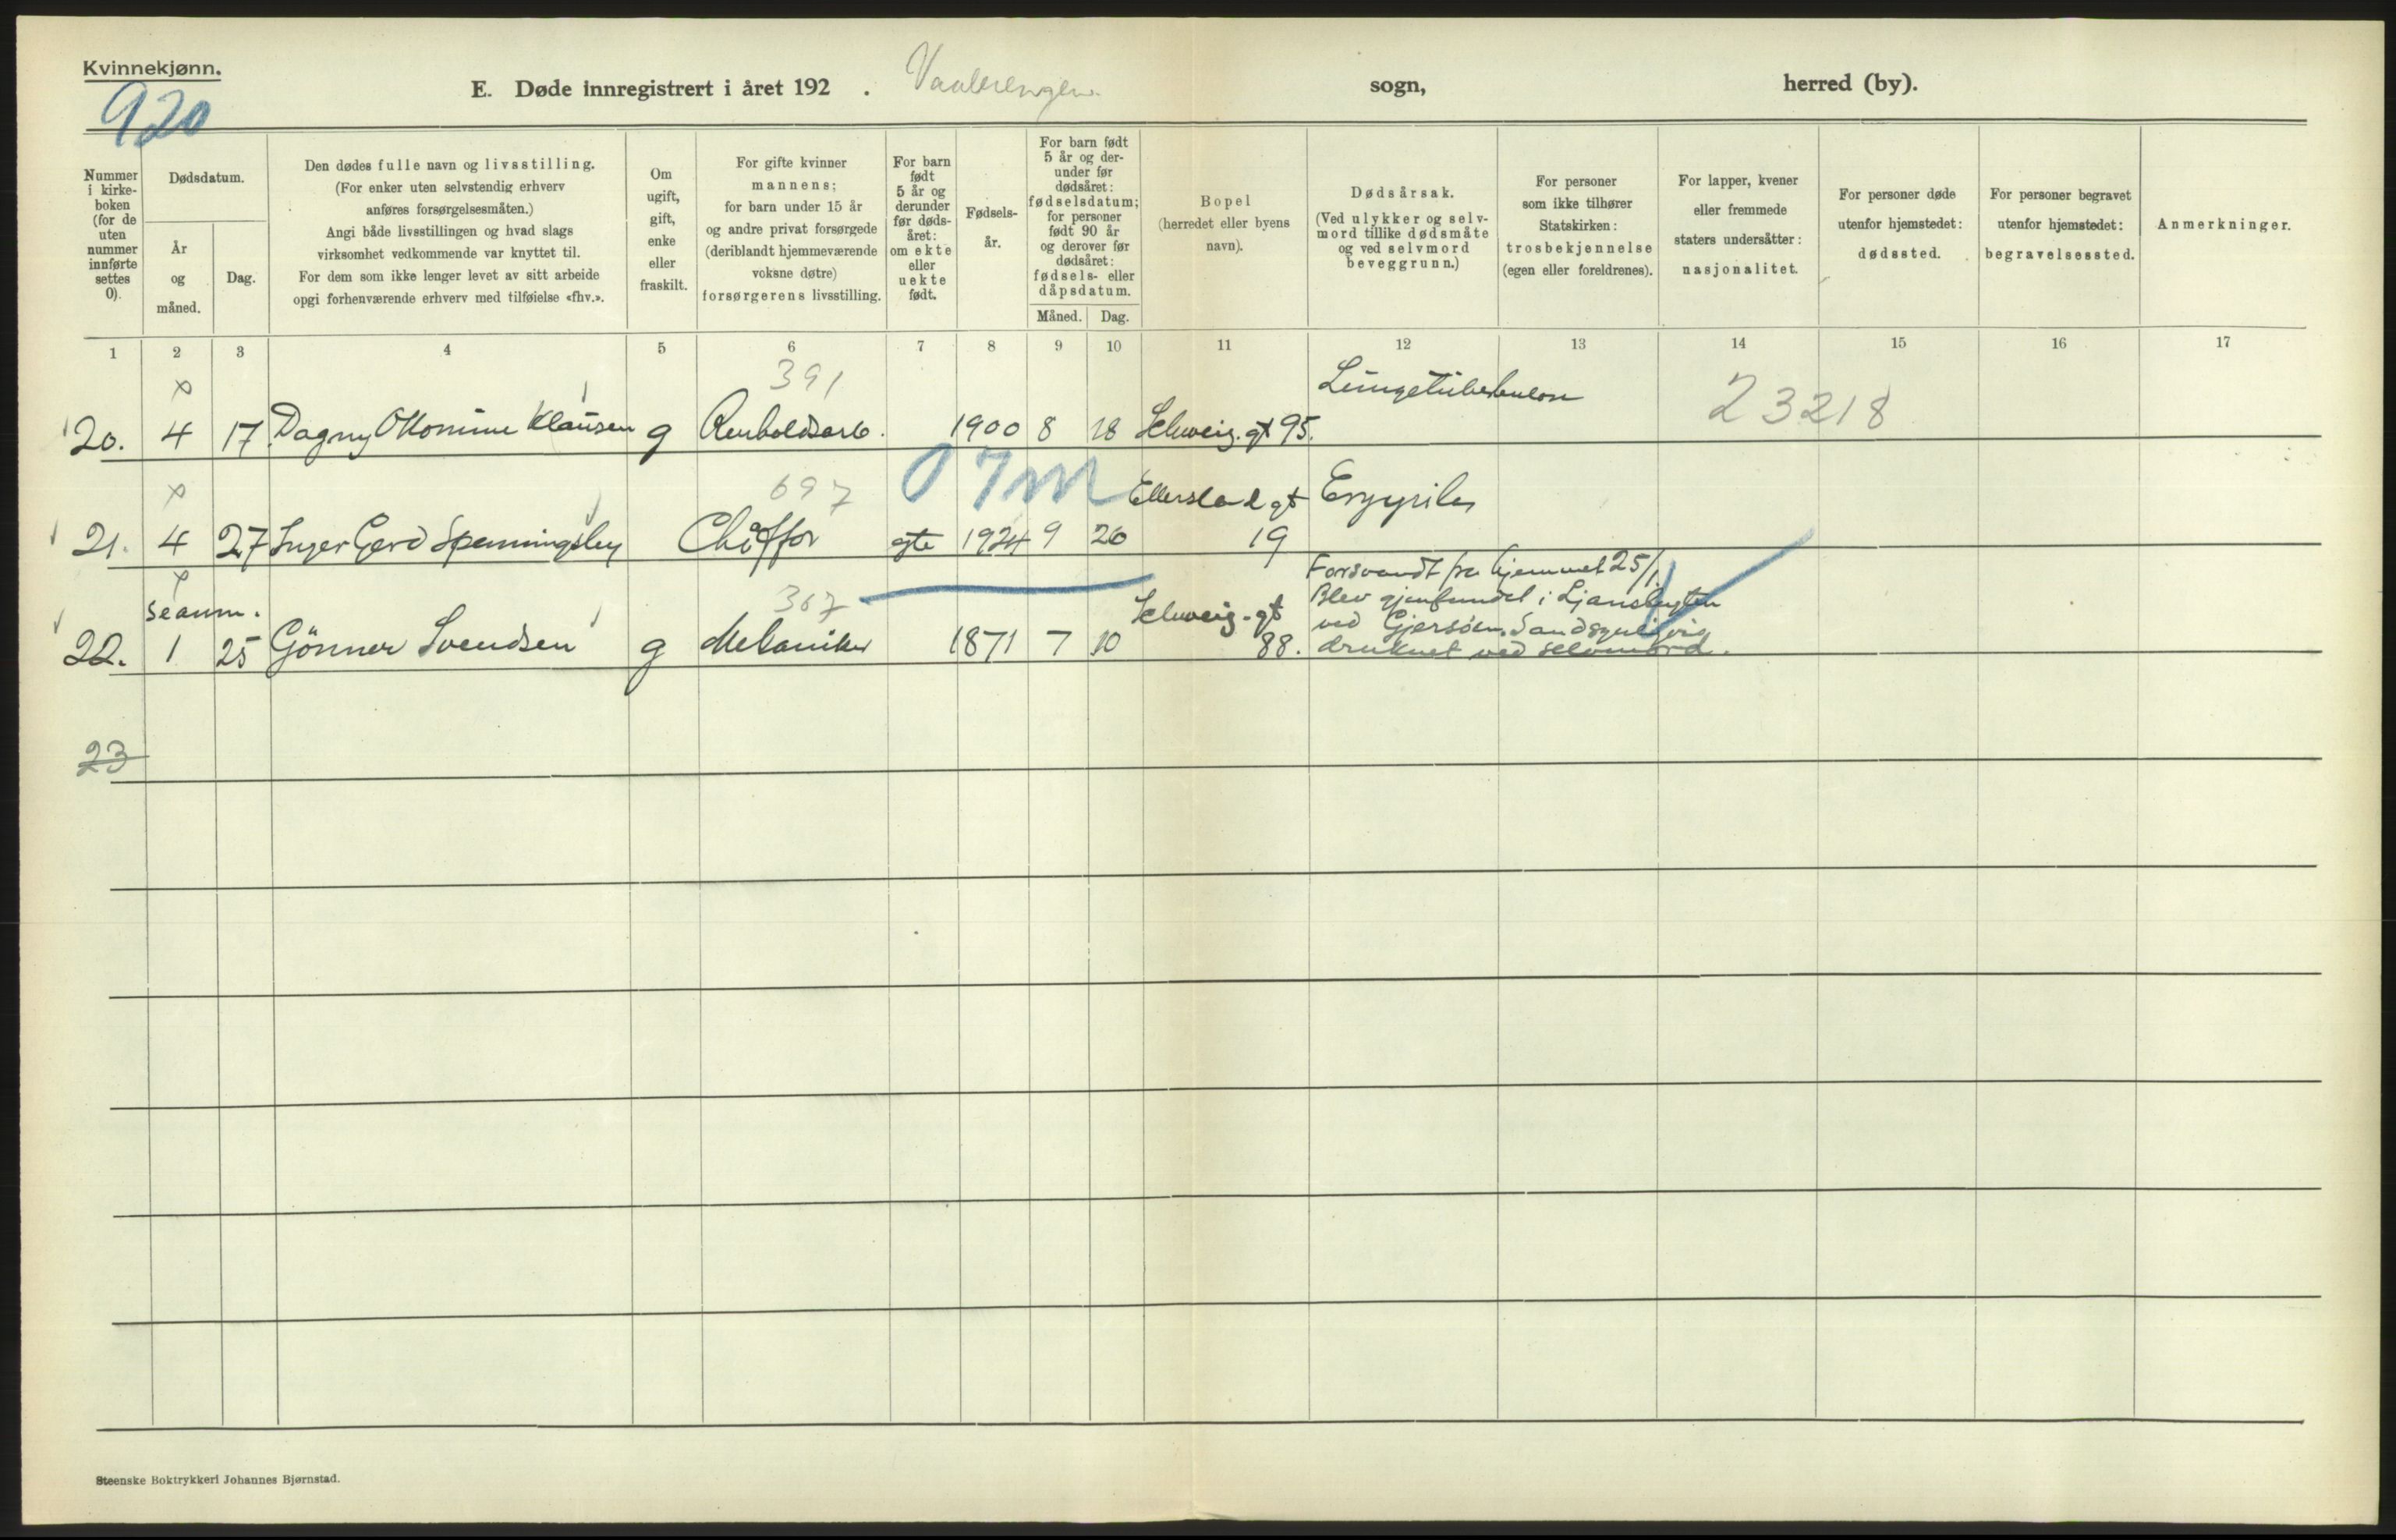 Kvinnekjønn.
920
E. Døde innregistrert i året 192 . Vaalerengen sogn, herred (by).
Nummer i kirkeboken (for de uten nummer innførte settes 0).
Dødsdatum.
År og måned.
Dag.
Den dødes fulle navn og livsstilling.
(For enker uten selvstendig erhverv
anføres forsørgelsesmåten.)
Angi både livsstillingen og hvad slags
virksomhet vedkommende var knyttet til.
For dem som ikke lenger levet av sitt arbeide
opgi forhenværende erhverv med tilføielse «fhv.».
Om
ugift,
gift,
enke
eller
fraskilt.
For gifte kvinner
mannens;
for barn under 15 år
og andre privat forsørgede
(deriblandt hjemmeværende
voksne døtre)
forsørgerens livsstilling.
For barn
født
5 år og
derunder
før døds-
året:
om ekte
eller
uekte
født.
Fødsels-
år.
For barn født
5 år og der-
under før
dødsåret:
fødselsdatum;
for personer
født 90 år
og derover før
dødsåret:
fødsels- eller
dåpsdatum.
Måned. Dag.
Bopel
(herredet eller byens
navn).
Dødsårsak.
(Ved ulykker og selv-
mord tillike dødsmåte
og ved selvmord
beveggrunn.)
For personer
som ikke tilhører
Statskirken:
trosbekjennelse
(egen eller foreldrenes).
For lapper, kvener
eller fremmede
staters undersåtter:
nasjonalitet.
For personer døde
utenfor hjemstedet:
dødssted.
For personer begravet
utenfor hjemstedet:
begravelsessted.
Anmerkninger.
1 2 3 4 5 6 7 8 9 10 11 12 13 14 15 16 17
x 391 Lungetuberkulose 23218
20. 4 17 Dagny Ottomine Klausen g Renholdsarb. 1900 8 18 Schweig. gt 95.
x 697 Ellerslad gt
21. 4 27 Inger Gerd Spenningsby Chåffør egte 1924 9 26 19
x 367 Forsvandt fra hjemmet 25/1.
Blev gjenfundet i
Schweig. gt ved Gjersøen. Sandsynligvis
22. 1 25 Gönner Svendsen g Mekaniker 1871 7 10 88. druknet ved selvmord.
23
Steenske Boktrykkeri Johannes Bjørnstad.